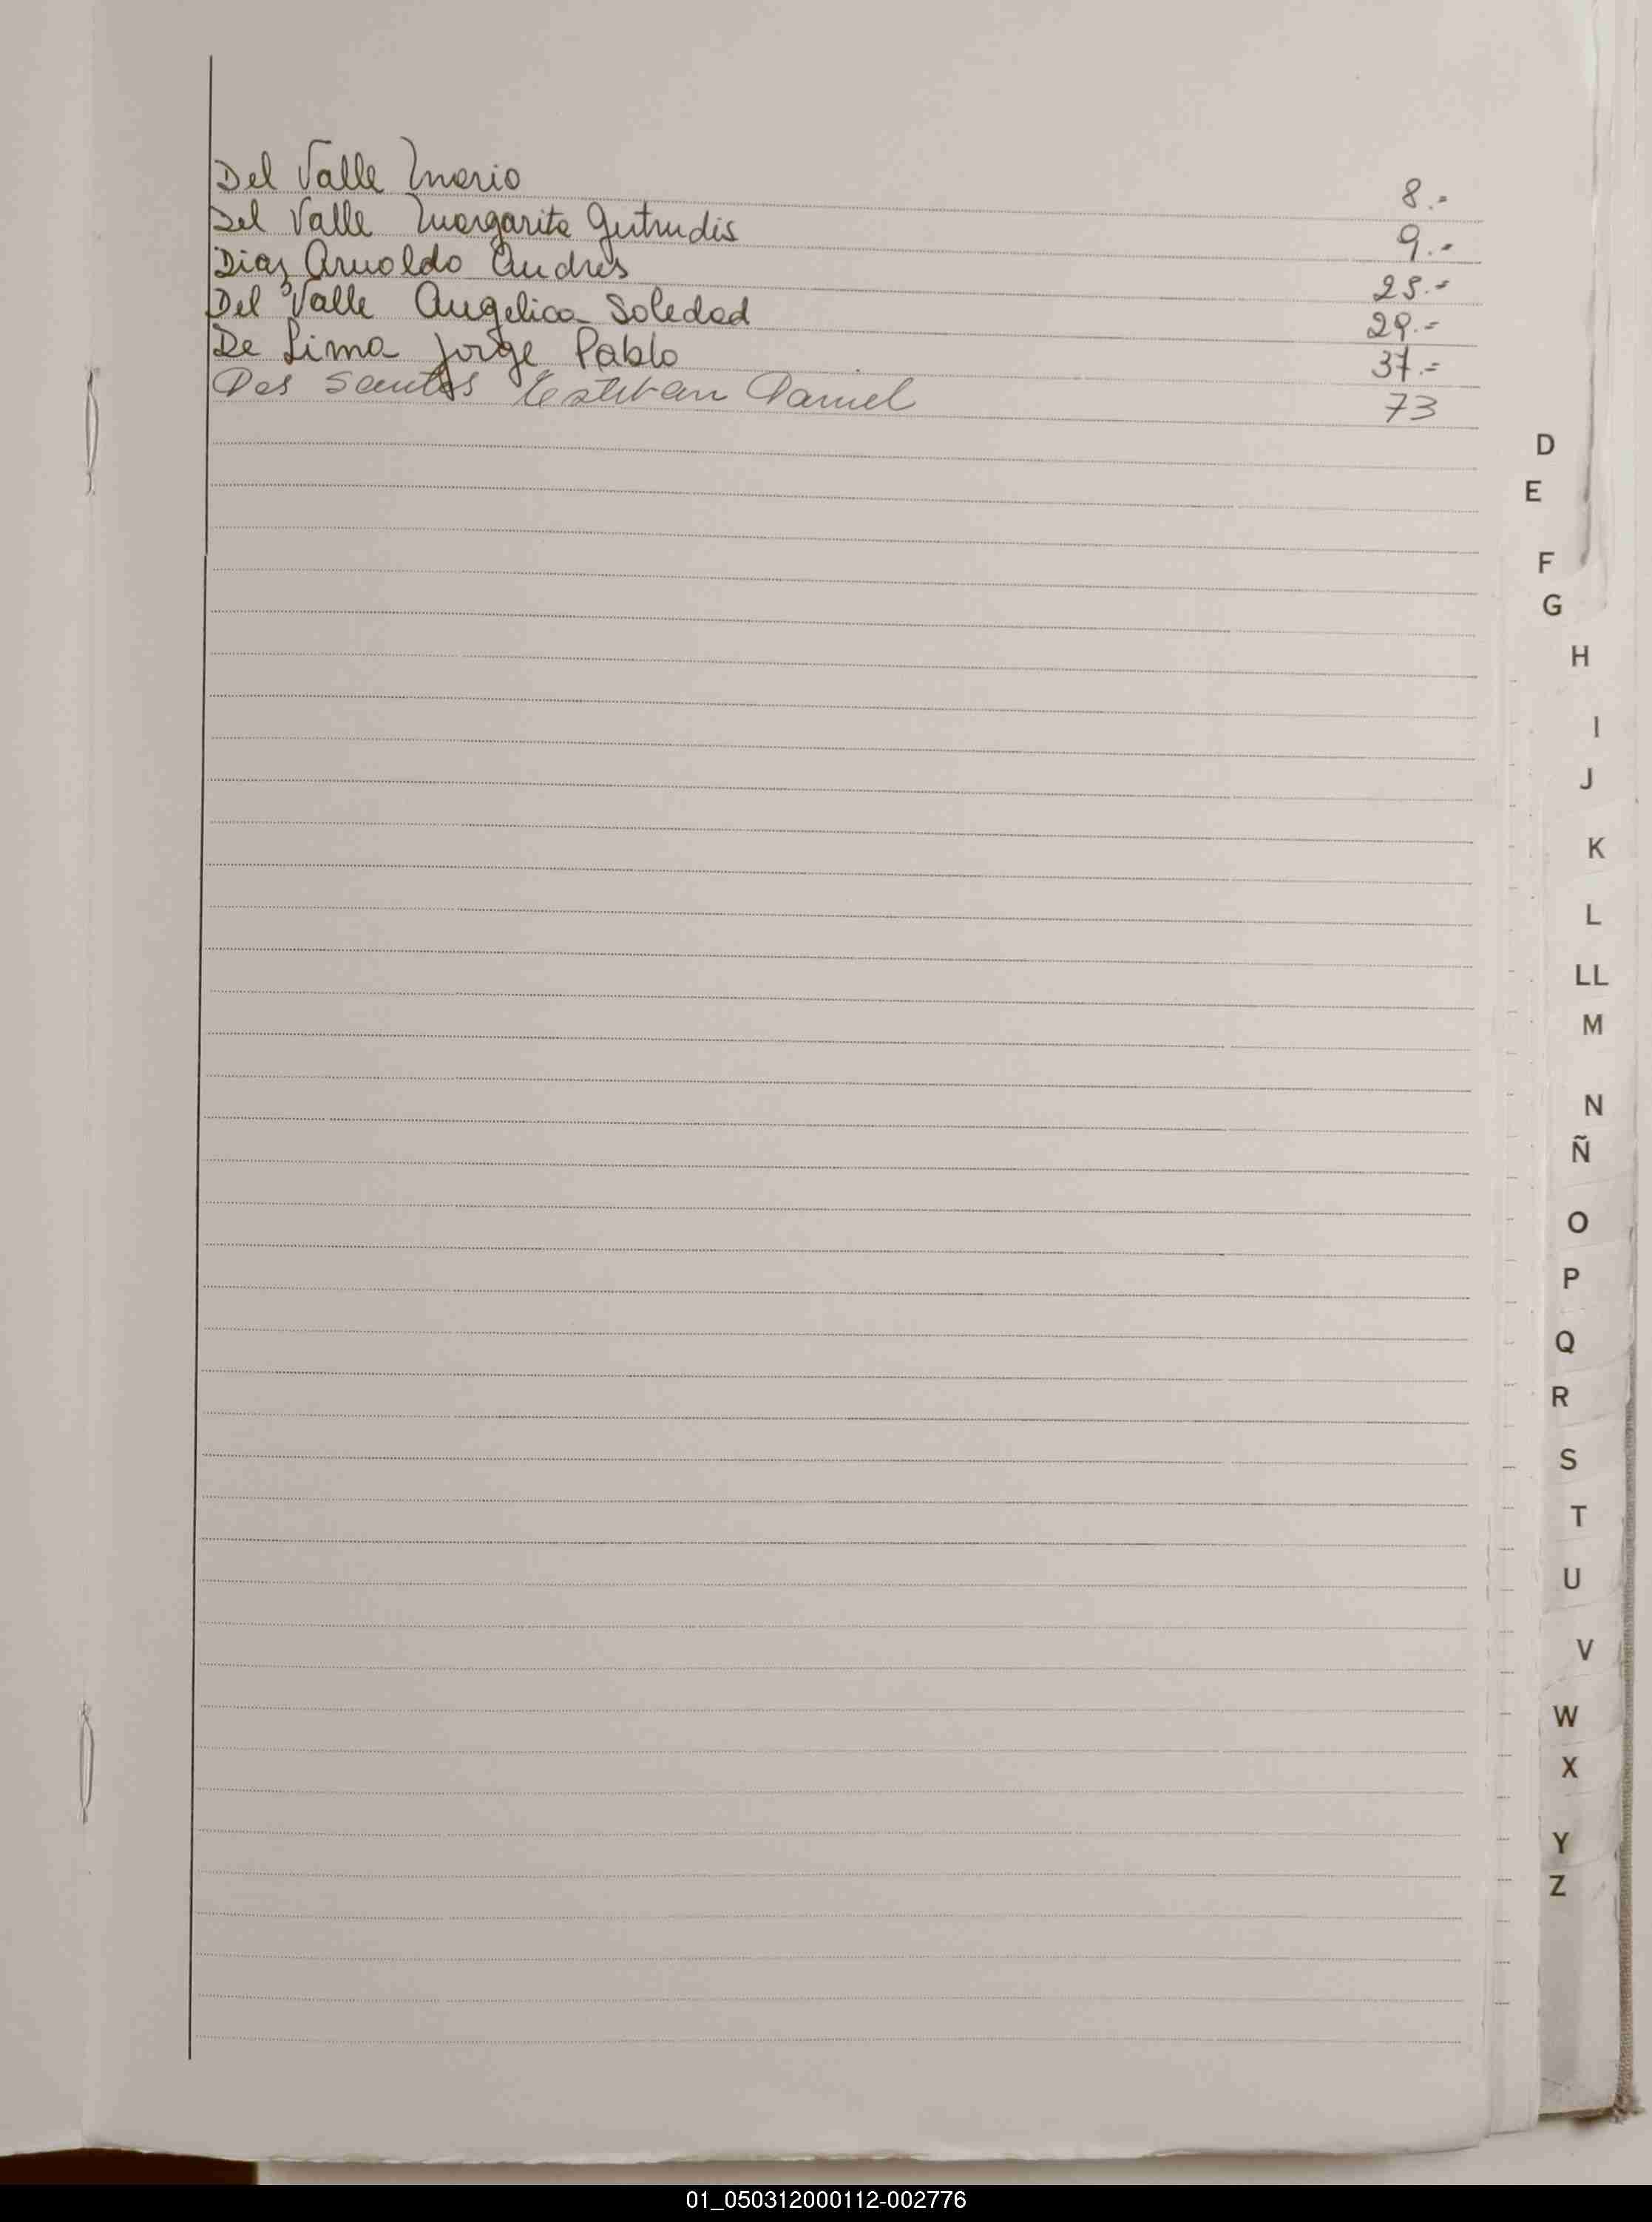 Del Valle Mario 8.-
Del Valle Margarita Gutrudis 9.-
Diaz Arnoldo Andres 25.-
Del Valle Angelica Soledad 29.-
De Lima Jorge Pablo 37.-
Dos Santos Esteban Daniel 73
D
E
F
G
H
I
J
K
L
LL
M
N
Ñ
O
P
Q
R
S
T
U
V
W
X
Y
Z
01_050312000112-002776